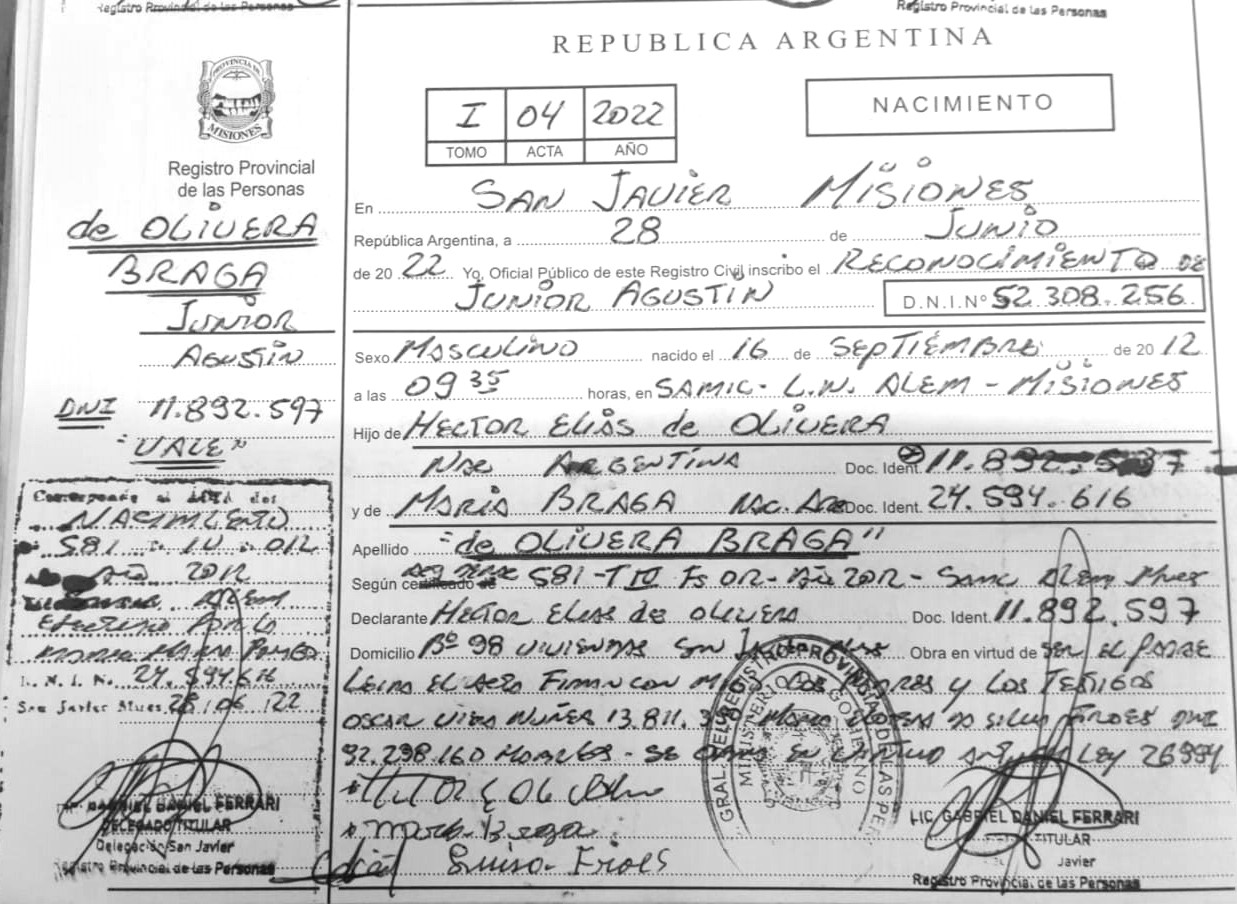 Registro Provincial de las Personas
Registro Provincial de las Personas
PROVINCIA DE
MISIONES
Registro Provincial
de las Personas
de OLIVERA
BRAGA
JUNIOR
AGUSTIN
DNI 11.892.597
"VALE"
Corresponde al Acta de:
NACIMIENTO
581 IV 012
Año 2012
24.594.616
San Javier Mnes 28/06/22
GABRIEL DANIEL FERRARI
DELEGADO TITULAR
Delegación San Javier
Registro Provincial de las Personas
REPUBLICA ARGENTINA
I 04 2022
TOMO ACTA AÑO
NACIMIENTO
En SAN JAVIER MISIONES
República Argentina, a 28 de JUNIO
de 20 22 Yo, Oficial Público de este Registro Civil inscribo el RECONOCIMIENTO DE
JUNIOR AGUSTIN D.N.I.Nº 52.308.256
Sexo MASCULINO nacido el 16 de SEPTIEMBRE de 20 12
a las 09 35 horas, en SAMIC - L.N. ALEM - MISIONES
Hijo de HECTOR ELIAS de OLIVERA
Nac ARGENTINA Doc. Ident. 11.892.537
y de MARIA BRAGA Nac. Arg Doc. Ident. 24.594.616
Apellido "de OLIVERA BRAGA"
Según certificado de 581 - T IV Año 2012 - Samic Alem Mnes
Declarante HECTOR ELIAS de OLIVERA Doc. Ident. 11.892.597
Domicilio Bº 98 VIVIENDAS SAN Obra en virtud de SER EL PADRE
LEIDA EL ACTA FIRMAN CON MIGO LOS Y LOS TESTIGOS
OSCAR NUÑEZ 13.811.
92.298.160 LEY 26994
Maria Braga
Luiso Froes
GRAL. DEL REGISTRO PROVINCIAL DE LAS PER
MINISTERIO DE GOBIERNO
LIC. GABRIEL DANIEL FERRARI
TITULAR
Javier
Registro Provincial de las Personas